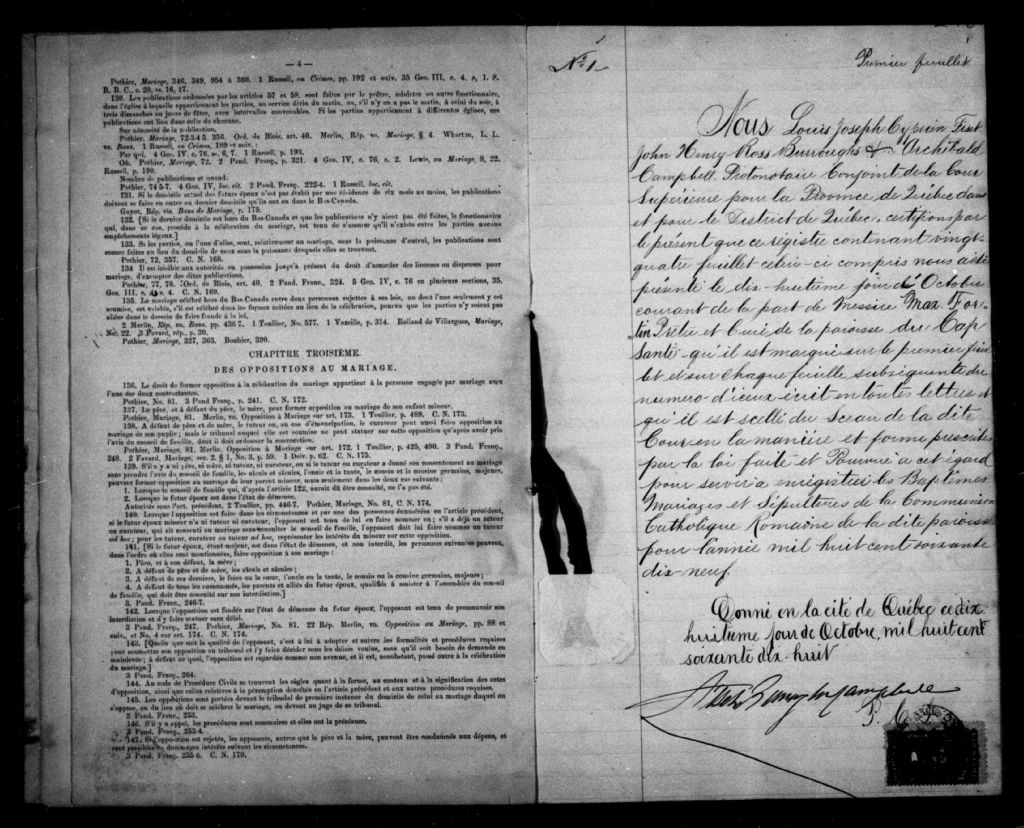 — 4 —
Pothier, Mariage, 346, 349, 954 à 360. 1 Russell, on Crimes, pp. 192 et suiv. 35 Geo. III, c. 4, s, 1. S.
R. B. C., c. 20, ss. 16, 17.
130. Les publications ordonnées par les articles 57 et 58, sont faites par le prêtre, ministre ou autre fonctionnaire,
dans l'église à laquelle appartiennent les parties, au service divin du matin, ou, s'il n'y en a pas le matin, à celui du soir, à
trois dimanches ou jours de fêtes, avec intervalles convenables. Si les parties appartiennent à différentes églises, ces
publications ont lieu dans celle de chacune.
Sur nécessité de la publication.
Pothier, Mariage, 72-3-4 5, 356. Ord. de Blois, art. 40. Merlin, Rép. vo. Mariage, § 4. Wharton, L. L.
vo. Bans. 1 Russell, on Crimes, 189 et suiv. :
Par qui. 4 Geo. IV, c. 76, ss. 6, 7. 1 Russell, p. 193.
Où. Pothier, Mariage, 72. 2 Pand. Franç., p. 321. 4 Geo. IV, c. 76, s. 2. Lewis, on Mariage, 8, 22.
Russell, p. 190.
Nombre de publications et quand.
Pothier, 74 5-7. 4 Geo. IV, loc. cit. 2 Pand. Franç. 222-4. 1 Russell, loc. cit.
131. Si le domicile actuel des futurs époux n'est pas établi par une résidence de six mois au moins, les publications
doivent se faire en outre au dernier domicile qu'ils ont eu dans le Bas-Canada.
Guyot, Rép. vis. Bans de Mariage, p. 175.
132. [Si le dernier domicile est hors du Bas-Canada et que les publications n'y aient pas été faites, le fonctionnaire
qui, dans ce cas, procède à la célébration du mariage, est tenu de s'assurer qu'il n'existe entre les parties aucuns
empêchements légaux.]
133. Si les parties, ou l'une d'elles, sont, relativement au mariage, sous la puissance d'autrui, les publications sont
encore faites au lieu du domicile de ceux sous la puissance desquels elles se trouvent.
Pothier, 72, 357. C. N. 168.
134 Il est loisible aux autorités en possession jusqu'à présent du droit d'accorder des licences ou dispenses pour
mariage, d'exempter des dites publications.
Pothier, 77, 78. Ord. de Blois, art. 40. 2 Pand. Franç., 324. 5 Geo. IV, c. 76 en plusieurs sections, 35.
Geo. III, c. 4, s. 4. C. N. 169.
135. Le mariage célébré hors du Bas-Canada entre deux personnes sujettes à ses lois, ou dont l'une seulement y est
soumise, est valable, s'il est célébré dans les formes usitées au lieu de la célébration, pourvu que les parties n'y soient pas
allées dans le dessein de faire fraude à la loi.
2 Merlin, Rép. vo. Bans. pp. 436 7. 1 Toullier, No. 577. 1 Vazeille, p. 314. Rolland de Villargues, Mariage,
No. 22. 3 Favard, rép., p. 30.
Pothier, Mariage, 327, 363. Bouhier, 390.
CHAPITRE TROISIÈME.
DES OPPOSITIONS AU MARIAGE.
136. Le droit de former opposition à la célébration du mariage appartient à la personne engagée par mariage avec
l'une des deux contractantes.
Pothier, No. 81. 3 Pand Franç., p. 241. C. N. 172.
137. Le père, et à défaut du père, la mère, peut former opposition au mariage de son enfant mineur.
Pothier, Mariage, 81. Merlin, vo. Opposition à Mariage sur art. 173. 1 Toullier, p. 489. C. N. 173.
138. A défaut de père et de mère, le tuteur ou, en cas d'émancipation, le curateur peut aussi faire opposition au
mariage de son pupille ; mais le tribunal auquel elle est soumise ne peut statuer sur cette opposition qu'après avoir pris
l'avis du conseil de famille, dont il doit ordonner la convocation.
Pothier, Mariage, 81. Merlin, Opposition à Mariage sur art. 172. 1 Toullier, p. 425, 490. 3 Pand. Franç.,
248. 2 Favard, Mariage, sec. 2, § 1, No. 3, p. 59. 1 Delv. p. 62. C. N. 175.
139. S'il n'y a ni père, ni mère, ni tuteur, ni curateur, ou si le tuteur ou curateur a donné son consentement au mariage
sans prendre l'avis du conseil de famille, les aïeuls et aïeules, l'oncle et la tante, le cousin et la cousine germains, majeurs,
peuvent former opposition au mariage de leur parent mineur, mais seulement dans les deux cas suivants :
1. Lorsque le conseil de famille qui, d'après l'article 122, aurait dû être consulté, ne l'a pas été.
2. Lorsque le futur époux est dans l'état de démence.
Autorités sous l'art. précédent. 2 Toullier, pp. 446-7. Pothier, Mariage, No. 81, C. N. 174.
140. Lorsque l'opposition est faite dans les circonstances et par une des personnes énumérées en l'article précédent,
si le futur époux mineur n'a ni tuteur ni curateur, l'opposant est tenu de lui en faire nommer un ; s'il a déjà un tuteur
ou curateur, qui ait consenti au mariage sans consulter le conseil de famille, l'opposant doit lui faire nommer un tuteur
ad hoc ; pour les tuteur, curateur ou tuteur ad hoc, représenter les intérêts du mineur sur cette opposition.
141. [Si le futur époux, étant majeur, est dans l'état de démence, et non interdit, les personnes suivantes peuvent,
dans l'ordre où elles sont mentionnées, faire opposition à son mariage :
1. Père, et à son défaut, la mère ;
2. A défaut de père et de mère, les aïeuls et aïeules ;
3. A défaut de ces derniers, le frère ou la sœur, l'oncle ou la tante, le cousin ou la cousine germains, majeurs ;
4. A défaut de tous les susnommés, les parents et alliés du futur époux, qualifiés à assister à l'assemblée du conseil
de famille, qui doit être consulté sur son interdiction.]
3. Pand. Franç., 246-7.
142. Lorsque l'opposition est fondée sur l'état de démence du futur époux, l'opposant est tenu de promouvoir son
interdiction et d'y faire statuer sans délai.
3 Pand. Franç., 247. Pothier, Mariage, No. 81. 22 Rép. Merlin, vo. Opposition au Mariage, pp. 88 et
suiv., et No. 4 sur art. 174. C. N. 174.
143. [Quelle que soit la qualité de l'opposant, c'est à lui à adopter et suivre les formalités et procédures requises
pour soumettre son opposition au tribunal et l'y faire décider sous les délais voulus, sans qu'il soit besoin de demande en
mainlevée ; à défaut de quoi, l'opposition est regardée comme non avenue, et il est, nonobstant, passé outre à la célébration
du mariage.]
3 Pand. Franç., 264.
144. Au code de Procédure Civile se trouvent les règles quant à la forme, au contenu et à la signification des actes
d'opposition, ainsi que celles relatives à la péremption décrétée en l'article précédent et aux autres procédures requises.
145. Les oppositions sont portées devant le tribunal de première instance du domicile de celui au mariage duquel on
s'oppose, ou du lieu où doit se célébrer le mariage, ou devant un juge de ce tribunal.
3 Pand. Franç., 253.
146. S'il y a appel, les procédures sont sommaires et elles ont la préséance.
3 Pand. Franç., 253-4.
147. Si l'opposition est rejetée, les opposants, autres que le père et la mère, peuvent être condamnés aux dépens, et
sont passibles de dommages intérêts suivant les circonstances.
3 Pand. Franç. 255 6. C. N. 179.
No. 1
Premier feuillet
Nous Louis Joseph Cyprien Fiset
John Henry Ross Burroughs & Archibald
Campbell Protonotaire Conjoint de la Cour
Supérieure pour la Province de Québec dans
et pour le District de Québec, certifions par
le présent que ce régistre contenant vingt-
quatre feuillet celui-ci compris nous a été
présenté le dix-huitième jour d'Octobre
courant de la part de Messire Max. For-
tin Prêtre et Curé de la paroisse du Cap
Santé qu'il est marqué sur le premier feuil
let et sur chaque feuille subséquente du
numéro d'iceux écrit en toutes lettres et
qu'il est scellé du Sceau de la dite
Cour en la manière et forme prescrite
par la loi faite et Pourvue à cet égard
pour servir à enregistrer les Baptêmes
Mariages et Sépultures de la Communion
Catholique Romaine de la dite paroisse
pour l'année mil huit cent soixante
dix-neuf
Donné en la cité de Québec ce dix
huitième jour de Octobre, mil huit cent
soixante dix-huit
Fiset Burroughs Campbell
P. C. S.